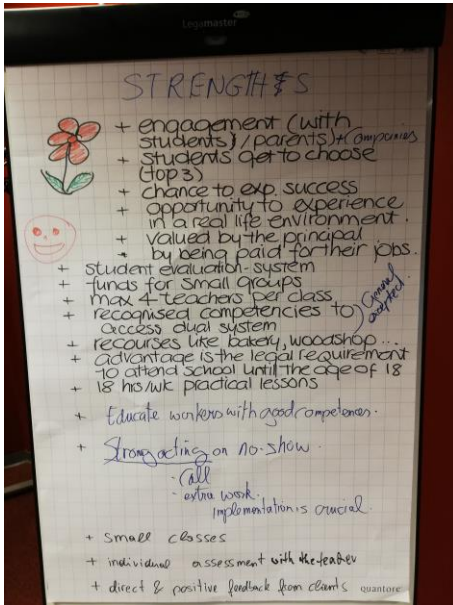 Legamaster
STRENGTHS
+ engagement (with
students)/parents)+(companies
+ students get to choose
(top 3)
+ chance to exp. success
+ opportunity to experience
in a real life environment.
+ valued by the principal
by being paid for their jobs.
+ student evaluation-system
+ funds for small groups
+ max 4 teachers per class
+ recognised competencies to
access dual system
general
accepted.
+ recourses like bakery, woodshop...
+ advantage is the legal requirement
to attend school until the age of 18
+ 18 hrs/wk practical lessons
+ Educate workers with good competences.
+ Strong acting on no-show.
- Call
- extra work.
implementation is crucial.
+ small classes
+ individual assessment with the teacher
+ direct & positive feedback from clients
quantore